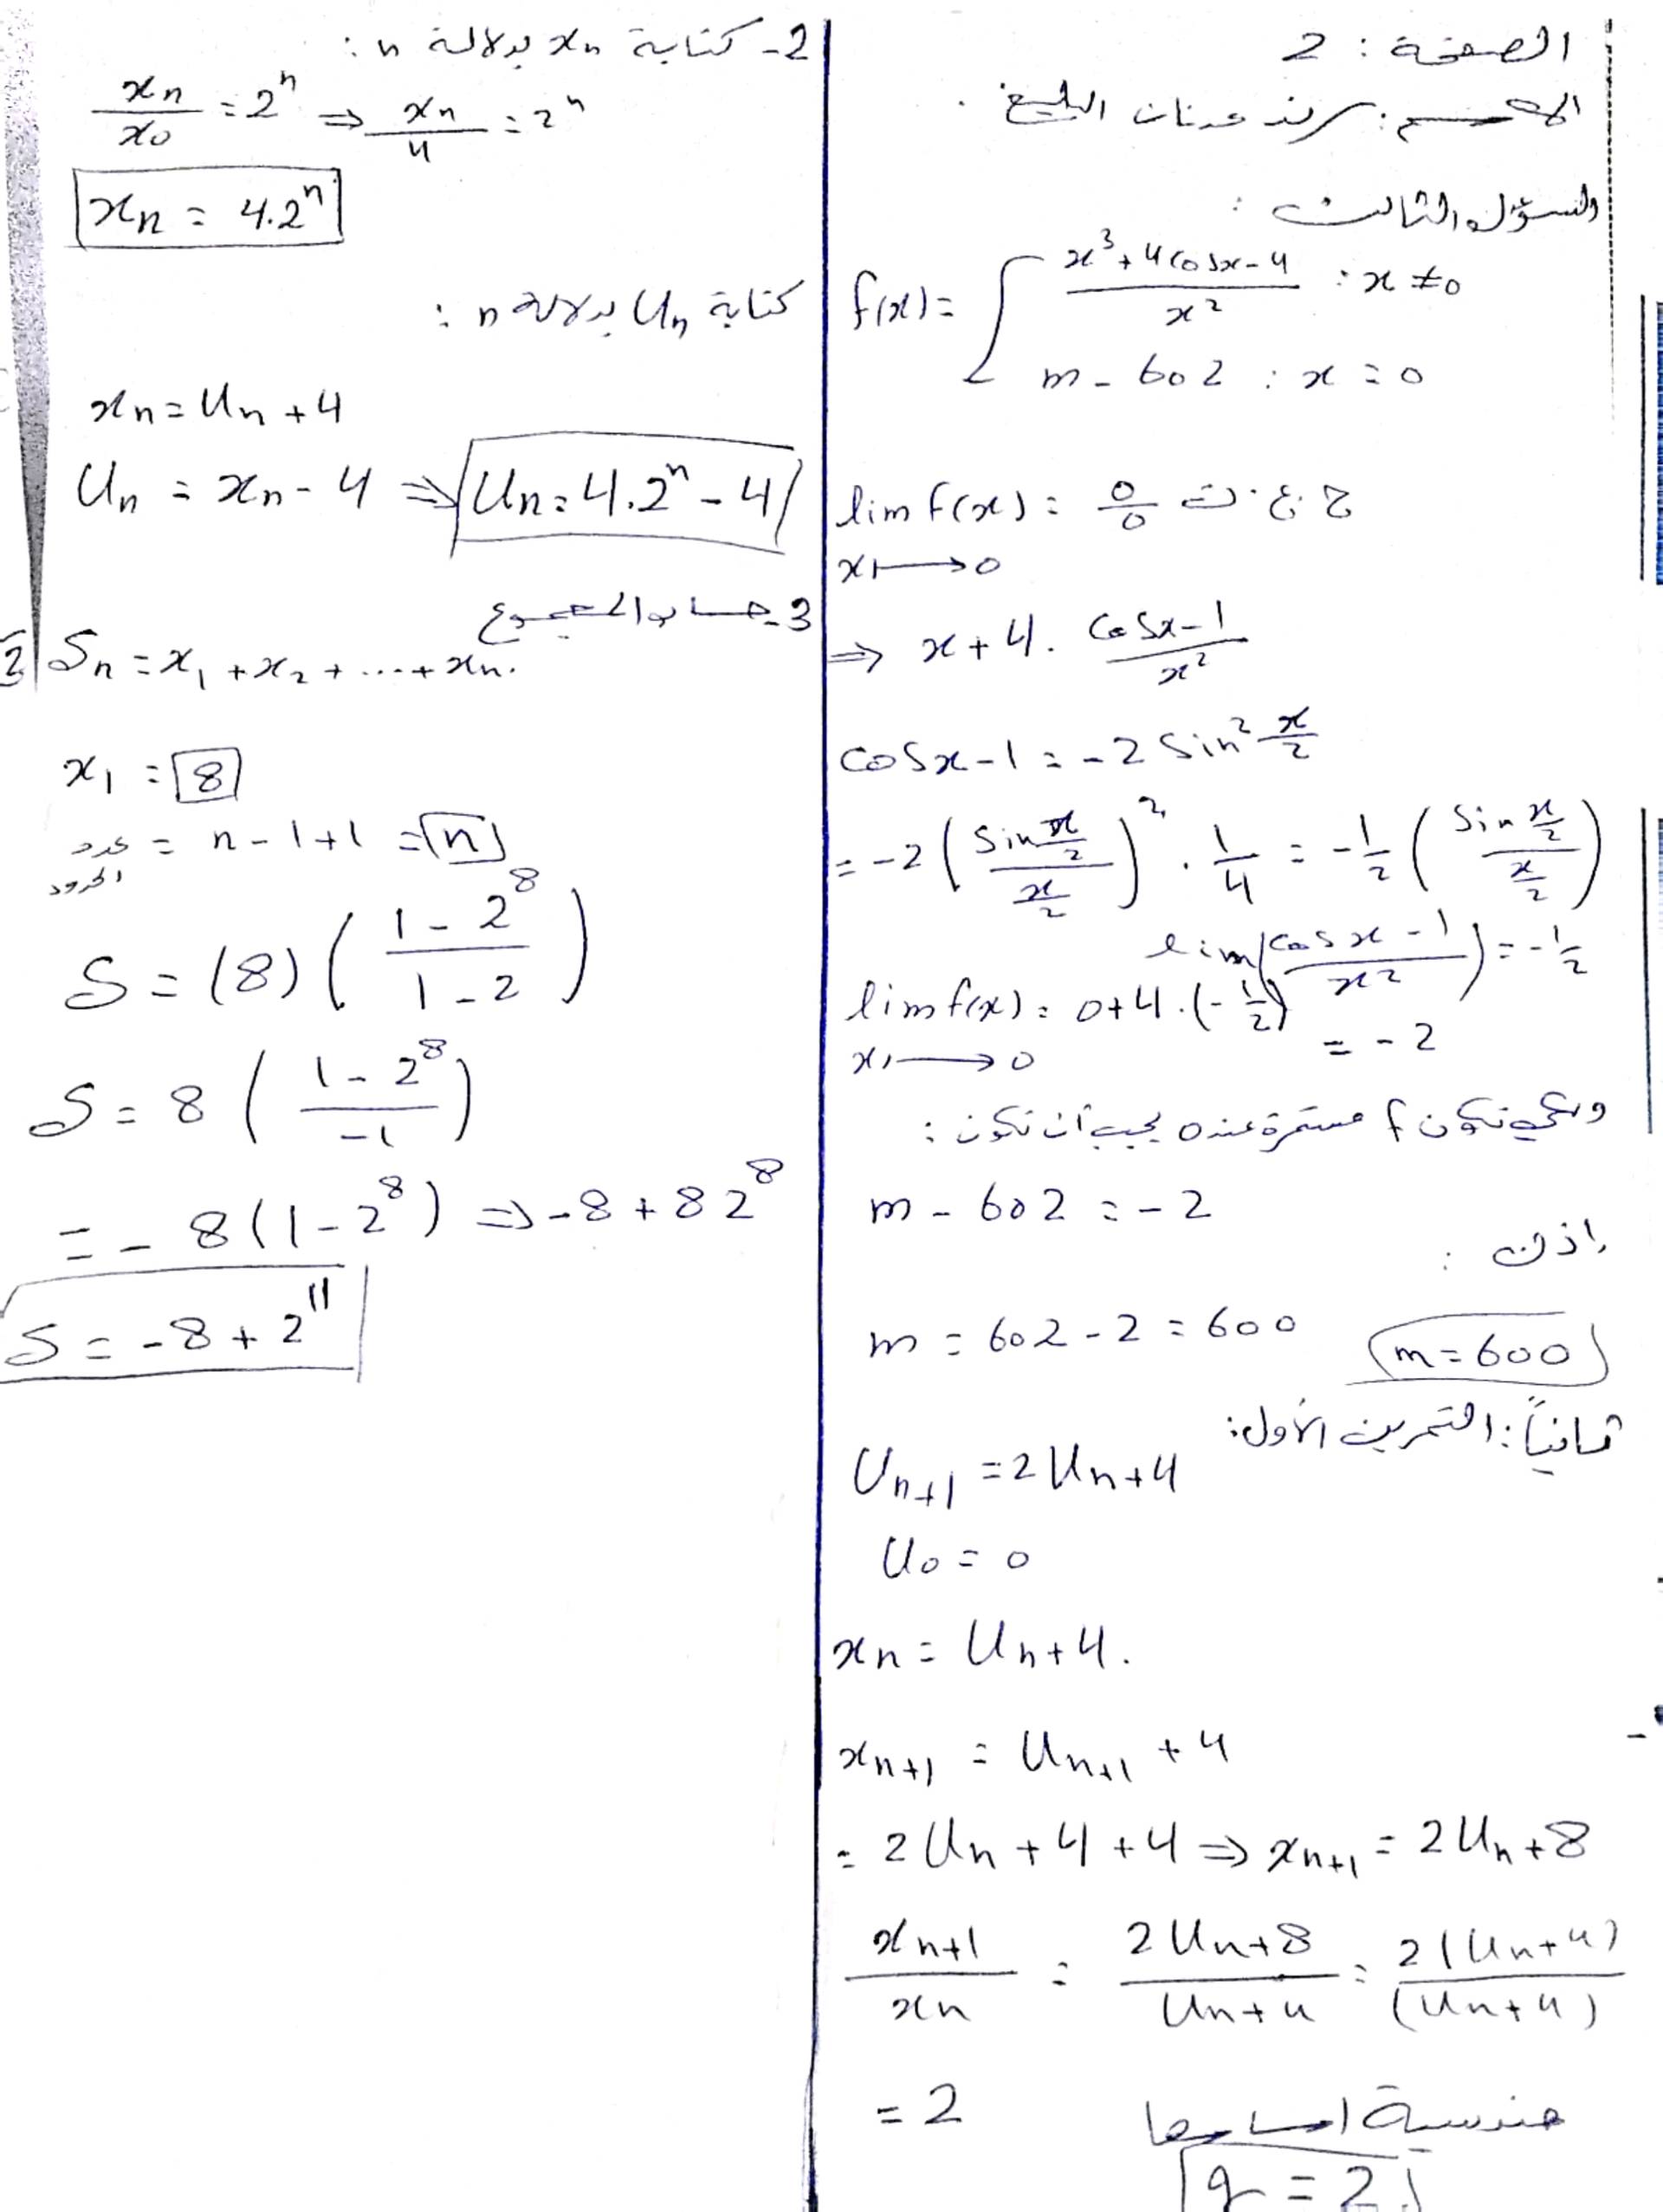 الصفحة : 2
الاسم : عدنان البليخ .
السؤال الثالث :
f(x) = { (x³ + 4cosx - 4) / x² : x ≠ 0
m - 602 : x = 0
lim f(x) = 0/0 ح.ع.ت
x ↦ 0
⇒ x + 4 . (cosx - 1) / x²
cosx - 1 = -2 sin² x/2
= -2 ( (sin x/2) / (x/2) )² . 1/4 = -1/2 ( (sin x/2) / (x/2) )
lim ( (cosx - 1) / x² ) = -1/2
lim f(x) = 0 + 4 . (-1/2) = -2
x ↦ 0
ولكي تكون f مستمرة عند 0 يجب أن تكون :
m - 602 = -2
إذن :
m = 602 - 2 = 600
m = 600
ثانياً : التمرين الأول :
Un+1 = 2Un + 4
U0 = 0
xn = Un + 4 .
xn+1 = Un+1 + 4
= 2Un + 4 + 4 ⇒ xn+1 = 2Un + 8
xn+1 / xn = (2Un + 8) / (Un + 4) = 2(Un + 4) / (Un + 4)
= 2 هندسية اساسها
q = 2
2 - كتابة xn بدلالة n :
xn / x0 = 2ⁿ ⇒ xn / 4 = 2ⁿ
xn = 4.2ⁿ
كتابة Un بدلالة n :
xn = Un + 4
Un = xn - 4 ⇒ Un = 4.2ⁿ - 4
3 - حساب المجموع
Sn = x1 + x2 + .... + xn .
x1 = 8
عدد الحدود = n - 1 + 1 = n
S = (8) ( (1 - 2⁸) / (1 - 2) )
S = 8 ( (1 - 2⁸) / -1 )
= - 8 (1 - 2⁸) ⇒ -8 + 8 2⁸
S = -8 + 2¹¹